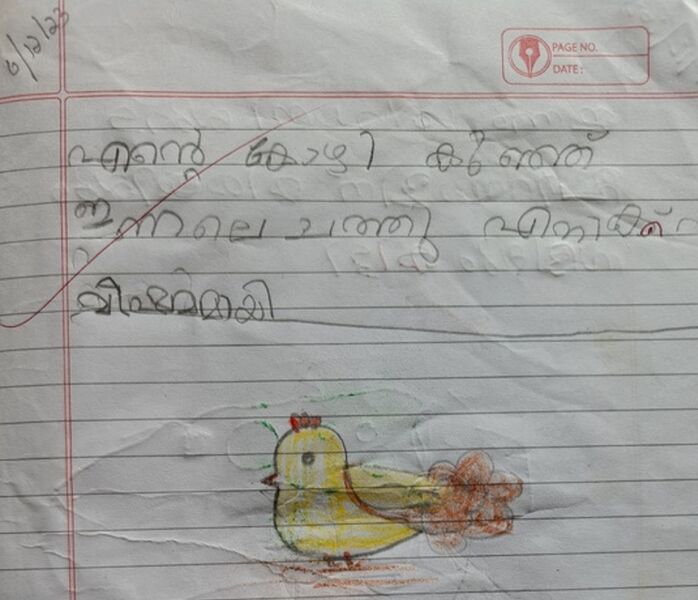 6/12/23
PAGE NO.
DATE:
എന്റെ കോഴി കുഞ്ഞ്
ഇന്നലെ ചത്തു എനിക്ക്
വിഷമമായി